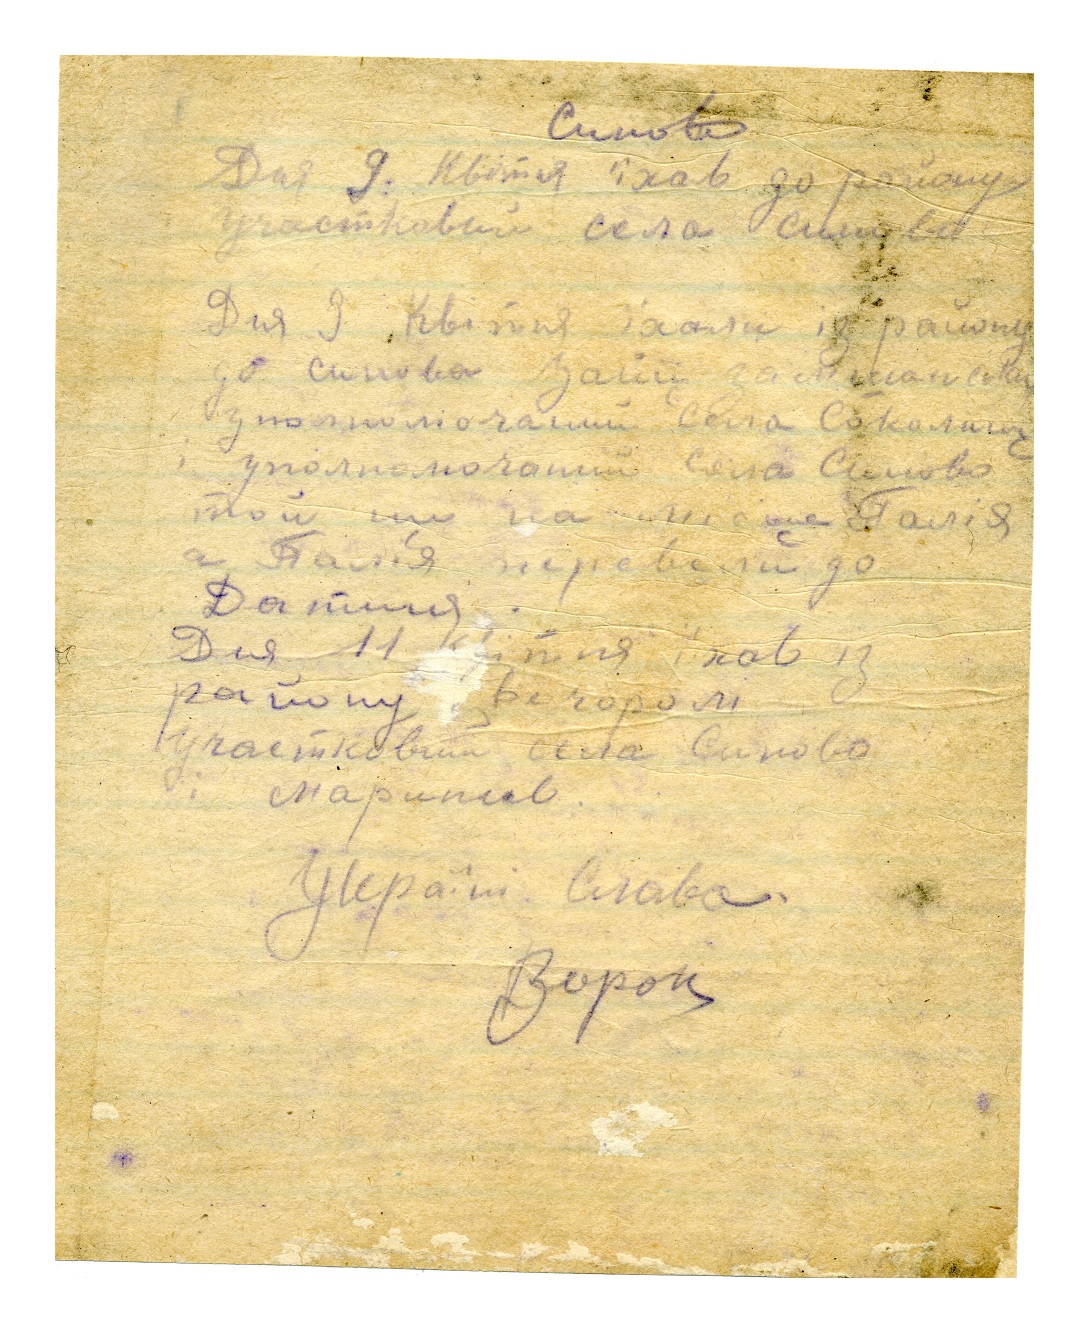 Синово
Дня 9. Квітня їхав до району
участковий села синово
Дня 9 Квітня їхали із району
до синова Заїц
уполномочаний села Соколищ
і уполномочаний села Синово
той що на місце Палія
а Палія перевели до
Датиня.
Дня 11 Квітня їхав із
району вечором
участковий села Синово
і Маринів.
Україні Слава.
Ворон